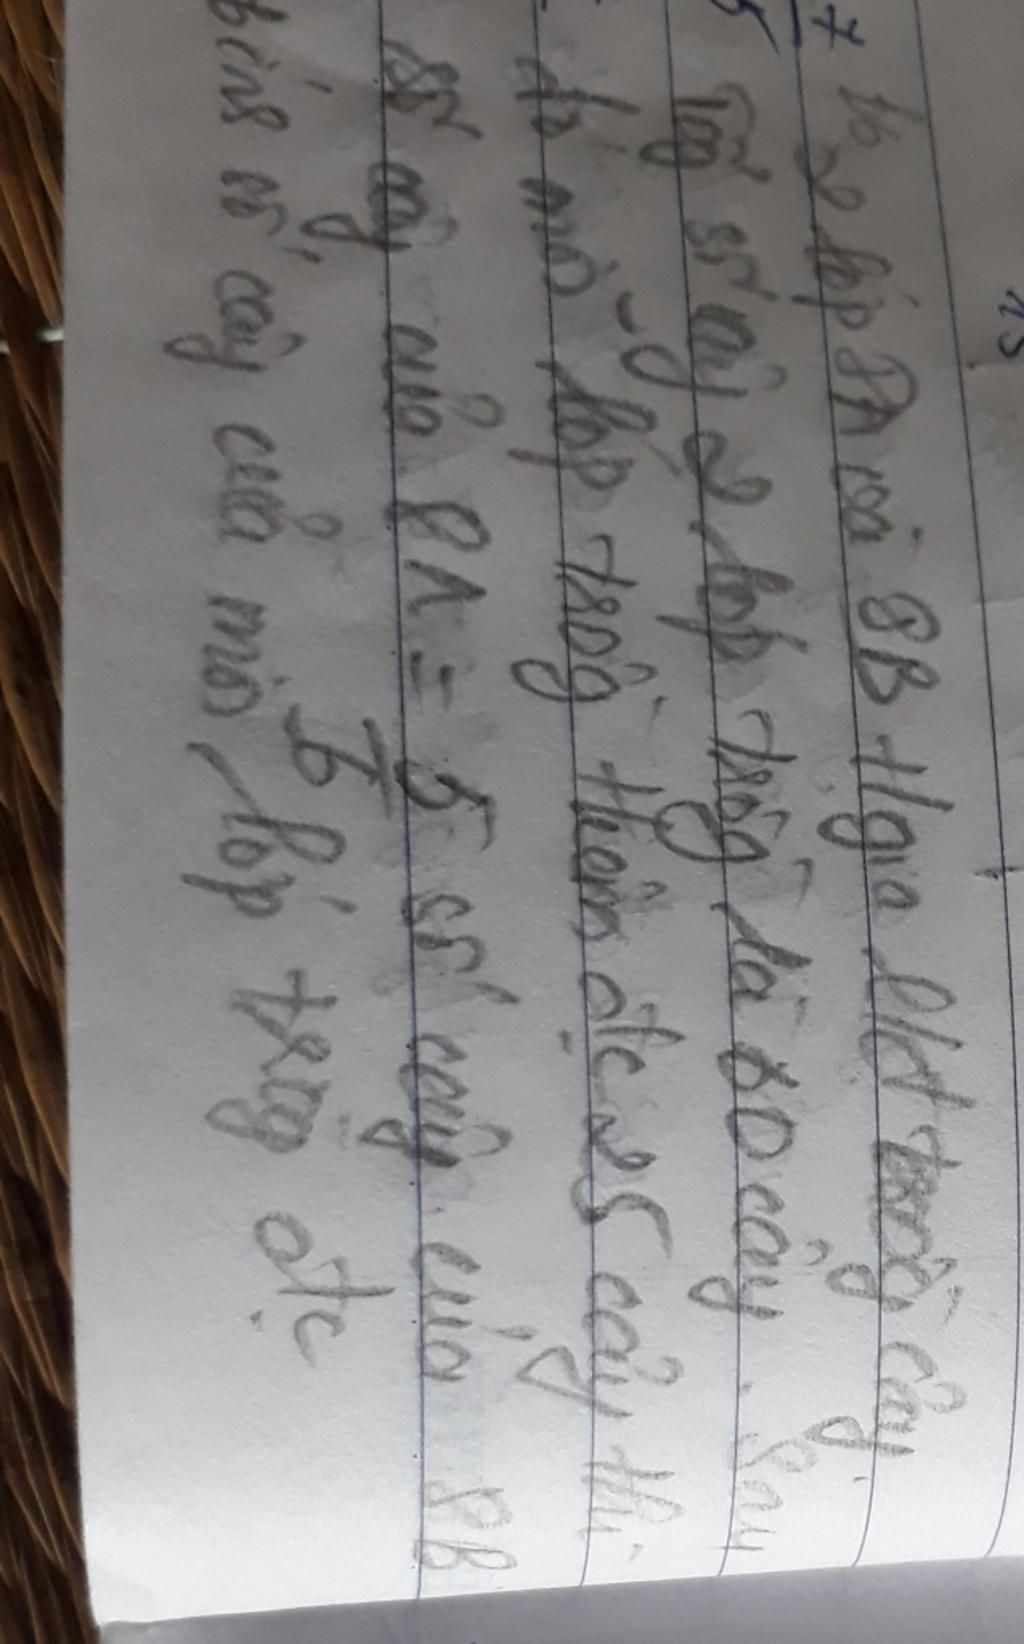 7
15
5
Có 2 lớp 8A và 8B tgia pht trồg cây
Tổg số cây 2 lớp trồg là 60 cây. Sau
đó mỗi lớp trồg thêm đc 25 cây thì
số cây của 8A = 5/6 số cây của 8B
Tính số cây của mỗi lớp trồg đc